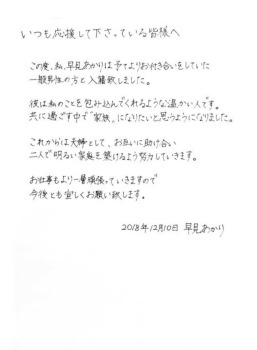 いつも応援して下さっている皆様へ
この度、私、早見あかりは予てよりお付き合いをしていた
一般男性の方と入籍致しました。
彼は私のことを包み込んでくれるような温かい人です。
共に過ごす中で"家族"になりたいと思うようになりました。
これからは夫婦として、お互いに助け合い
二人で明るい家庭を築けるよう努力していきます。
お仕事もより一層頑張っていきますので
今後とも宜しくお願い致します。
2018年12月10日 早見あかり